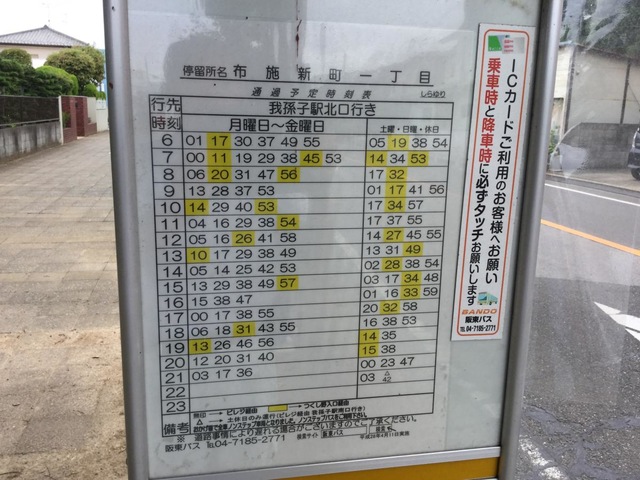 停留所名 布施新町一丁目
通過予定時刻表 しらゆり
行先 我孫子駅北口行き
時刻 月曜日～金曜日 土曜・日曜・休日
6 01 17 30 37 49 55 05 19 38 54
7 00 11 19 29 38 45 53 14 34 53
8 06 20 31 47 56 17 32
9 13 28 37 53 01 17 41 56
10 14 29 40 53 17 34 57
11 04 16 29 38 54 17 37 55
12 05 16 26 41 58 14 27 45 55
13 10 17 29 38 49 13 31 49
14 05 14 25 42 53 02 28 38 54
15 13 29 38 49 57 03 17 34 48
16 15 38 47 01 16 33 59
17 00 17 38 55 20 32 58
18 06 18 31 43 55 16 38 53
19 13 26 46 56 14 35
20 12 20 31 40 15 38
21 03 17 36 00 23 47
22 03 △42
23
備考 無印 → ビレジ経由 うつくし野入口経由
△ → 土休日のみ運行(ビレジ経由 我孫子駅南口行き)
おかげ様で全車ノンステップ車両となりました。ノンステップバスをご利用下さい。
※ 道路事情により遅れる場合がございますのでご了承ください。
阪東バス ℡04-7185-2771 検索サイト 阪東バス 検索
平成28年4月11日実施
ICカードご利用のお客様へお願い
乗車時と降車時に必ずタッチお願いします
BANDO
阪東バス
℡04-7185-2771